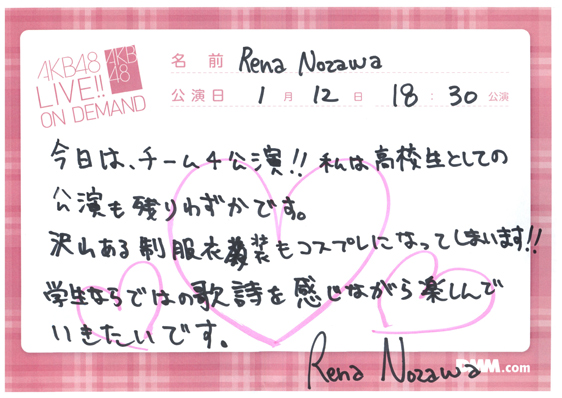 AKB48
LIVE!!
ON DEMAND
AKB
48
名 前 Rena Nozawa
公演日 1月 12日 18:30公演
今日は、チーム4公演!! 私は高校生としての
公演も残りわずかです。
沢山ある制服衣装もコスプレになってしまいます!!
学生ならではの歌詩を感じながら楽しんで
いきたいです。
Rena Nozawa
DMM.com